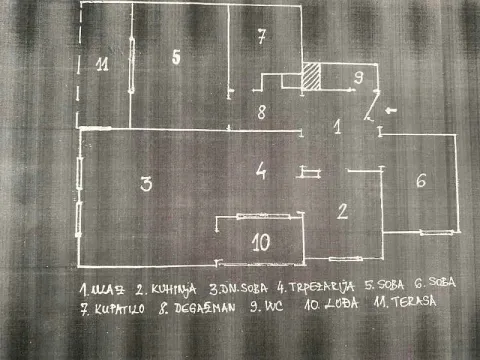 7
11
5
9
8
1
4
3
6
2
10
1. ULAZ 2. KUHINJA 3. DN. SOBA 4. TRPEZARIJA 5. SOBA 6. SOBA
7. KUPATILO 8. DEGAŽMAN 9. WC 10. LOĐA 11. TERASA